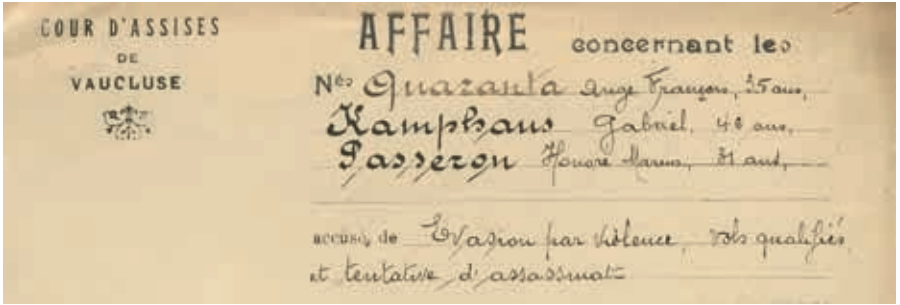 COUR D'ASSISES
DE
VAUCLUSE
AFFAIRE concernant les
Nés Quaranta Ange François, 35 ans,
Kamphaus Gabriel, 40 ans,
Passeron Honoré Marius, 31 ans,
accusés de Evasion par violence, vols qualifiés
et tentative d'assassinat